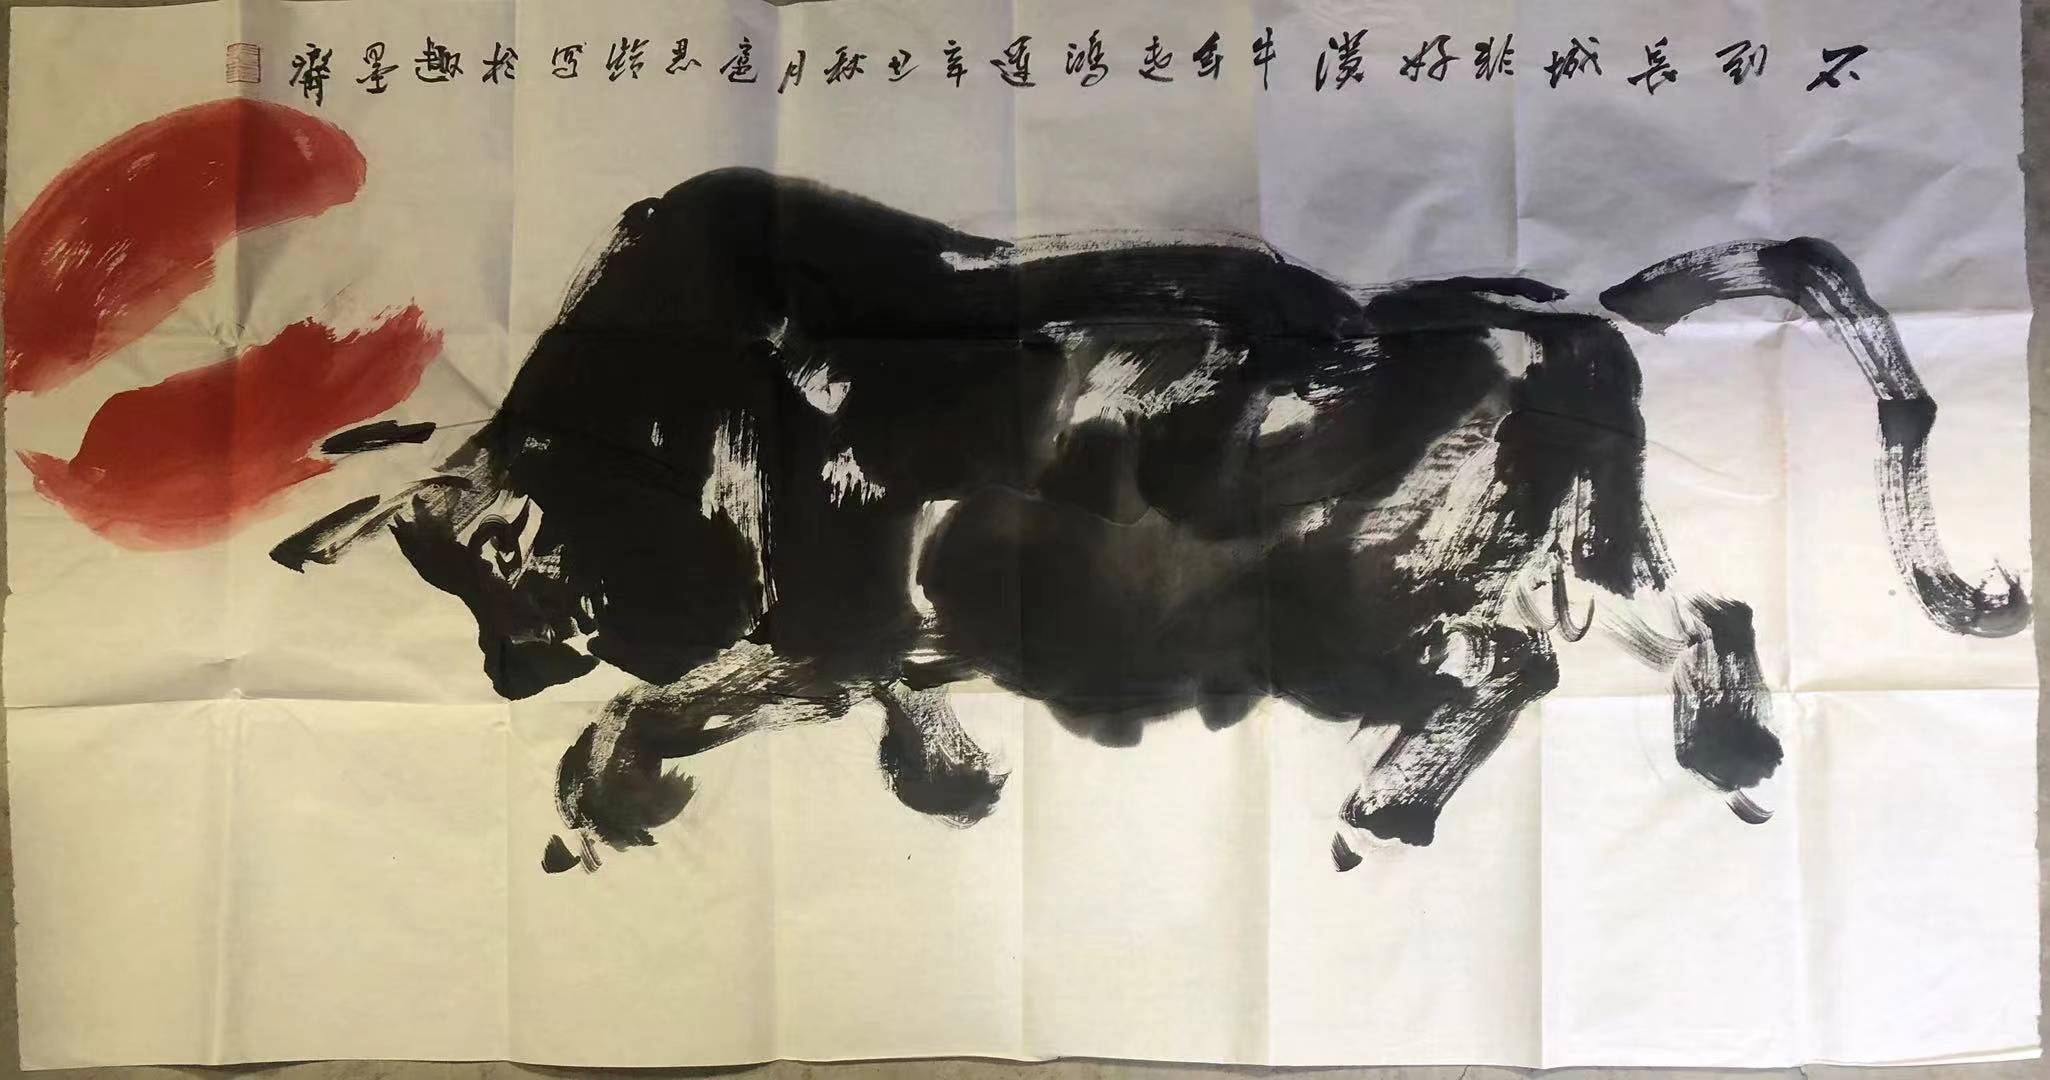 不到長城非好漢牛年走鴻運辛丑秋月思齡写於趣墨齋